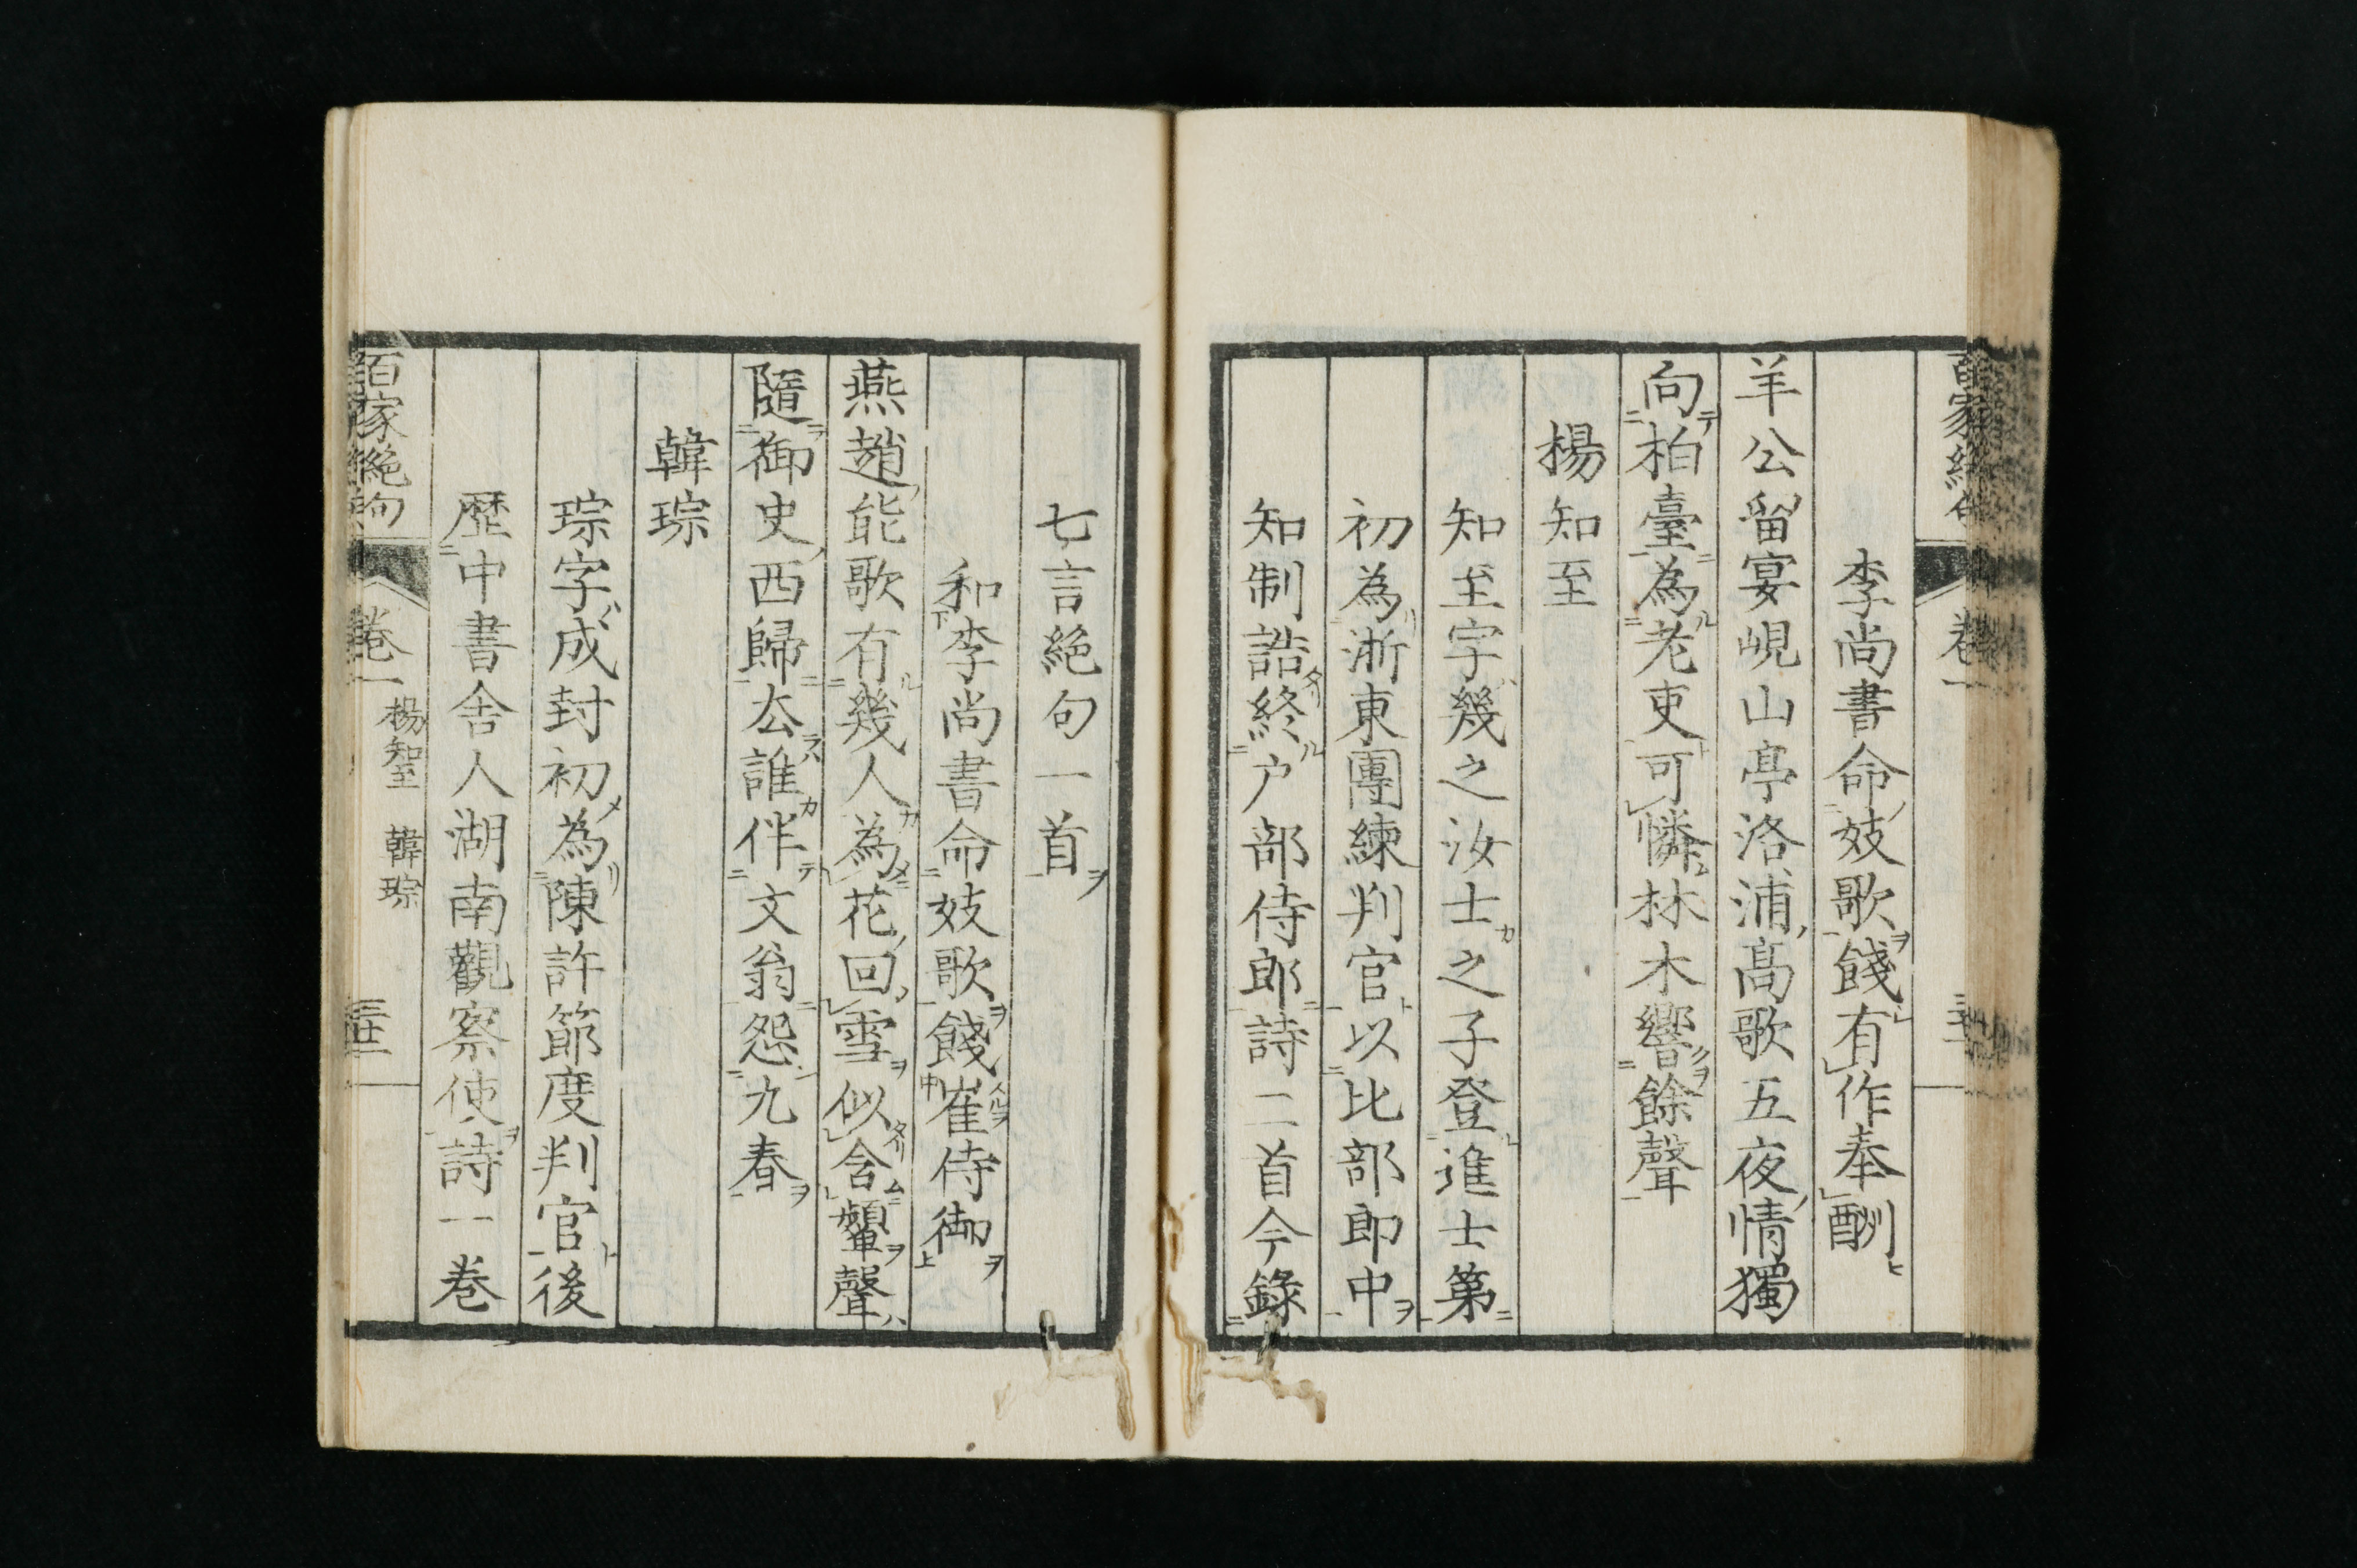 百家絶句
卷一
李尚書命妓歌餞有作奉酬
羊公留宴峴山亭洛浦高歌五夜情獨
向柏臺為老吏可憐林木響餘聲
楊知至
知至字幾之汝士之子登進士第
初為浙東團練判官以比部郎中
知制誥終户部侍郎詩二首今錄
七言絕句一首
和李尚書命妓歌餞崔侍御
燕趙能歌有幾人為花回雪似含嚬聲
隨御史西歸去誰伴文翁怨九春
韓琮
琮字成封初為陳許節度判官後
歷中書舍人湖南觀察使詩一卷
百家絕句
卷一
楊知至
韓琮